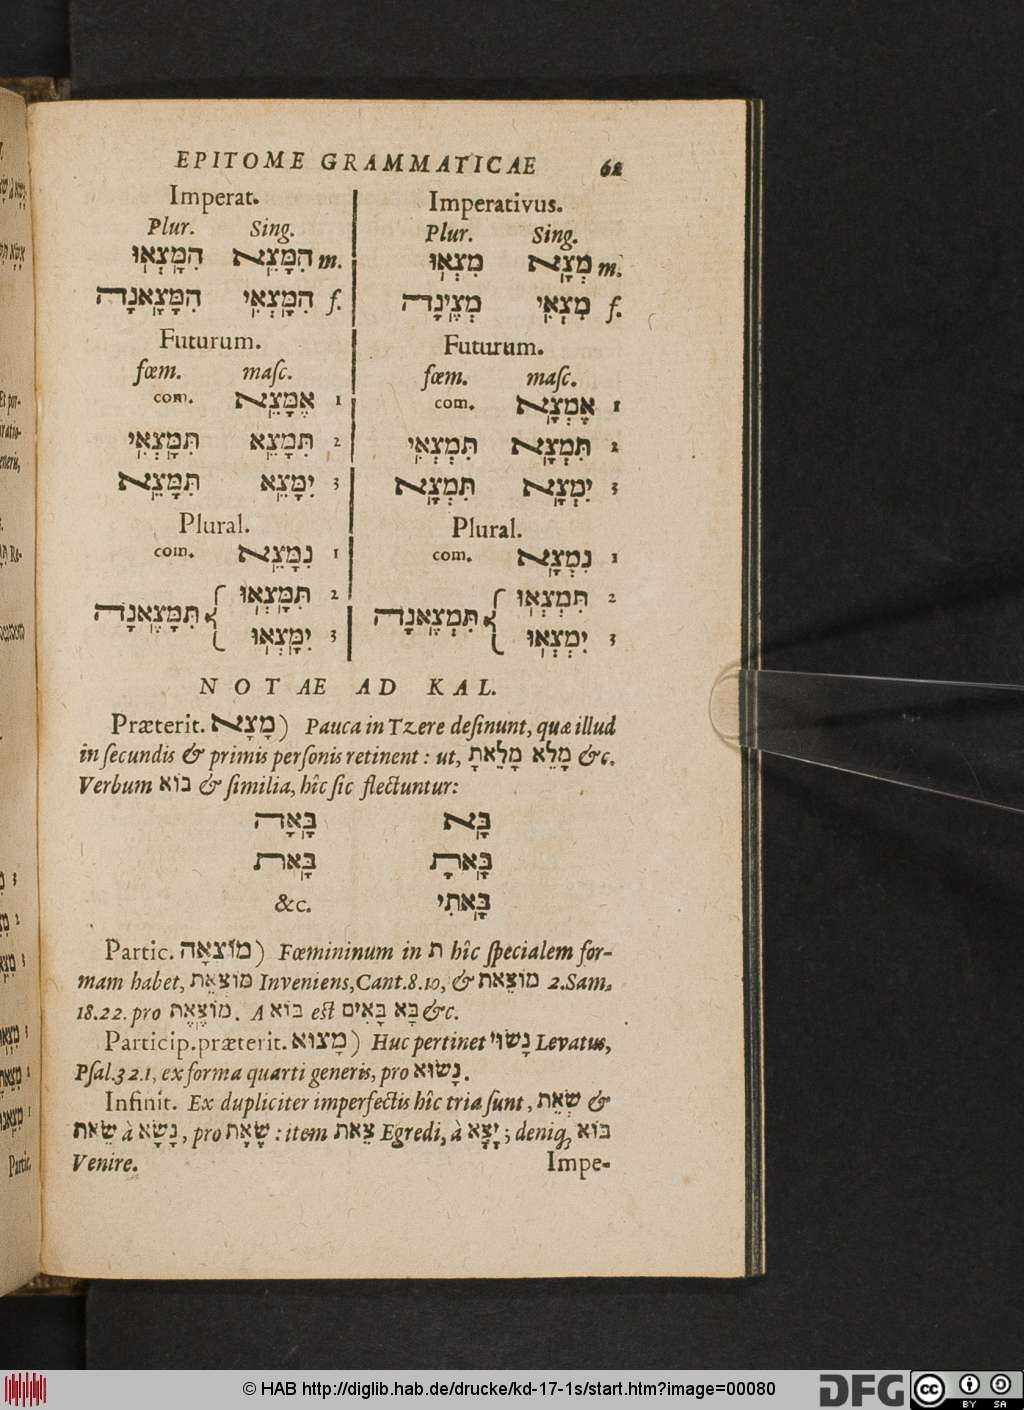 EPITOME GRAMMATICAE 62
Imperat. Imperativus.
Plur. Sing. Plur. Sing.
הִמָּצְאוּ הִמָּצֵא m. מִצְאוּ מְצָא m.
הִמָּצֶאנָה הִמָּצְאִי f. מְצֶינָה מִצְאִי f.
Futurum. Futurum.
fœm. maſc. fœm. maſc.
com. אֶמָּצֵא 1 com. אֶמְצָא 1
תִּמָּצְאִי תִּמָּצֵא 2 תִּמְצְאִי תִּמְצָא 2
תִּמָּצֵא יִמָּצֵא 3 תִּמְצָא יִמְצָא 3
Plural. Plural.
com. נִמָּצֵא 1 com. נִמְצָא 1
תִּמָּצְאוּ 2 תִּמְצְאוּ 2
תִּמָּצֶאנָה תִּמְצֶאנָה
יִמָּצְאוּ 3 יִמְצְאוּ 3
NOTAE AD KAL.
Præterit. מָצָא) Pauca in Tzere deſinunt, quæ illud
in ſecundis & primis perſonis retinent : ut, מָלֵא מָלֵאתָ &c.
Verbum בוֹא & ſimilia, hîc ſic flectuntur:
בָּאָה בָּא
בָּאת בָּאתָ
&c. בָּאתִי
Partic. מוֹצאָה) Fœmininum in ת hîc ſpecialem for-
mam habet, מוֹצְאֵת Inveniens, Cant. 8.10, & מוֹצֵאת 2. Sam.
18.22. pro מוֹצֶאֶת. A בוֹא est בָּא בָּאִים &c.
Particip. præterit. מָצוּא) Huc pertinet נָשׂוּי Levatus,
Pſal. 32.1, ex forma quarti generis, pro נָשׂוּא.
Infinit. Ex dupliciter imperfectis hîc tria ſunt, שְׂאֵת &
שֵׂאת à נָשָׂא, pro שֶׂאֶת : item צֵאת Egredi, à יָצָא ; deniq; בוֹא
Venire. Impe-
© HAB http://diglib.hab.de/drucke/kd-17-1s/start.htm?image=00080
DFG cc BY SA